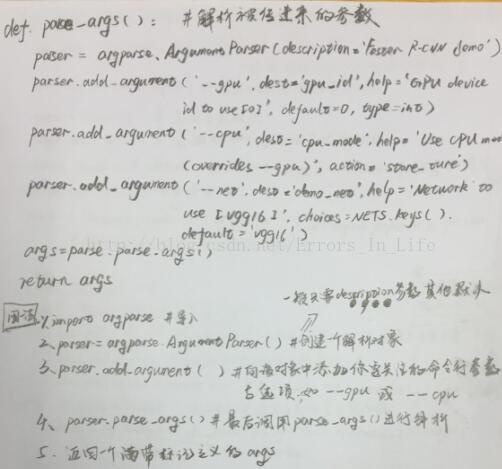 def. parse_args(): #解析被传进来的参数
parser = argparse. Argument Parser (description='Faster R-CNN demo')
parser.add_argument ('--gpu'. dest='gpu_id', help='GPU device
id to use [0]', default=0, type=int)
parser.add_argument ('--cpu', dest='cpu_mode', help='Use CPU mo
(overrides --gpu)', action='store_ture')
parser.add_argument ('--net', dest='demo_net', help='Network to
use [vgg16]', choices=NETS.keys().
default='vgg16')
args=parse.parse.args()
http://blog.csdn.net/Errors_In_Life
return args
一般只需description参数 其他默认
用法: 1. import argparse #导入
2、parser=argparse.ArgumentParser() #创建个解析对象
3、parser.add_argument() #向该对象中添加你要关注的命令行参数
与选项,如 --gpu 或 --cpu
4、parser.parse_args() #最后调用parse_args()进行解析
5. 返回一个满带标记定义的args